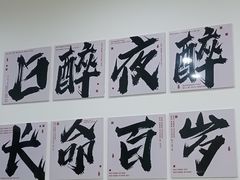 日醉夜醉
长命百岁